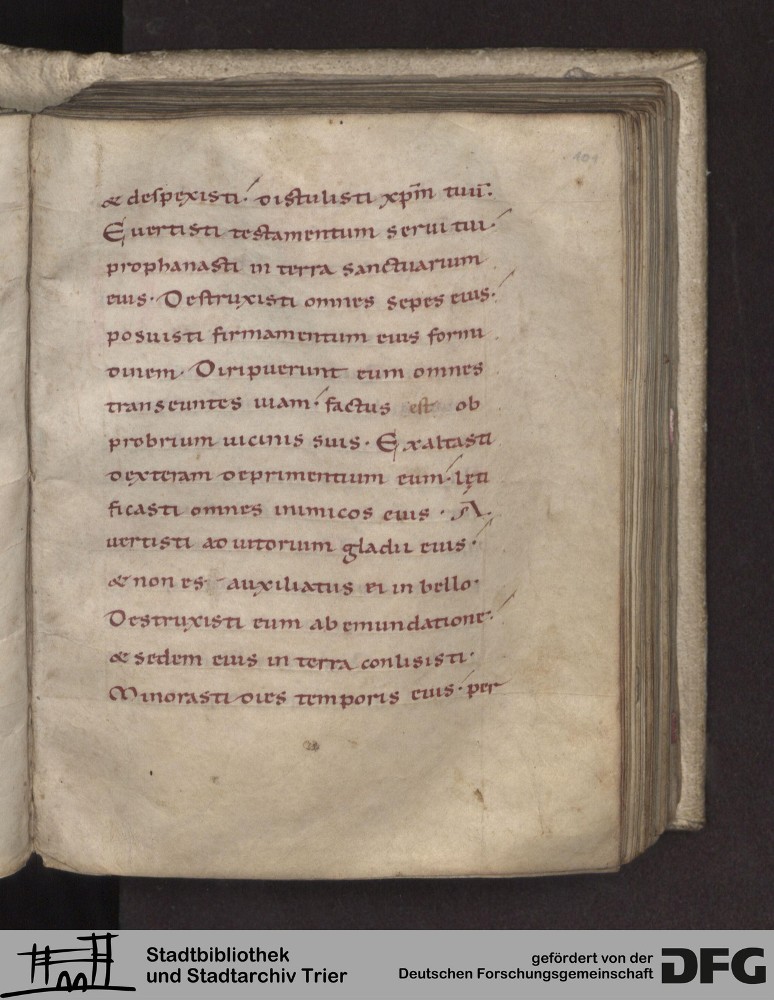 101
& despexisti. distulisti xp̄m tuū.
Euertisti testamentum serui tui.
prophanasti in terra sanctuarium
eius. Destruxisti omnes sepes eius.
posuisti firmamentum eius formi
dinem. Diripuerunt eum omnes
transeuntes uiam. factus est ob
probrium uicinis suis. Exaltasti
dexteram deprimentium eum. lęti
ficasti omnes inimicos eius. A
uertisti adiutorium gladii eius.
& non es auxiliatus ei in bello.
Destruxisti eum ab emundatione.
& sedem eius in terra conlisisti.
Minorasti dies temporis eius. per
Stadtbibliothek
und Stadtarchiv Trier
gefördert von der
Deutschen Forschungsgemeinschaft
DFG